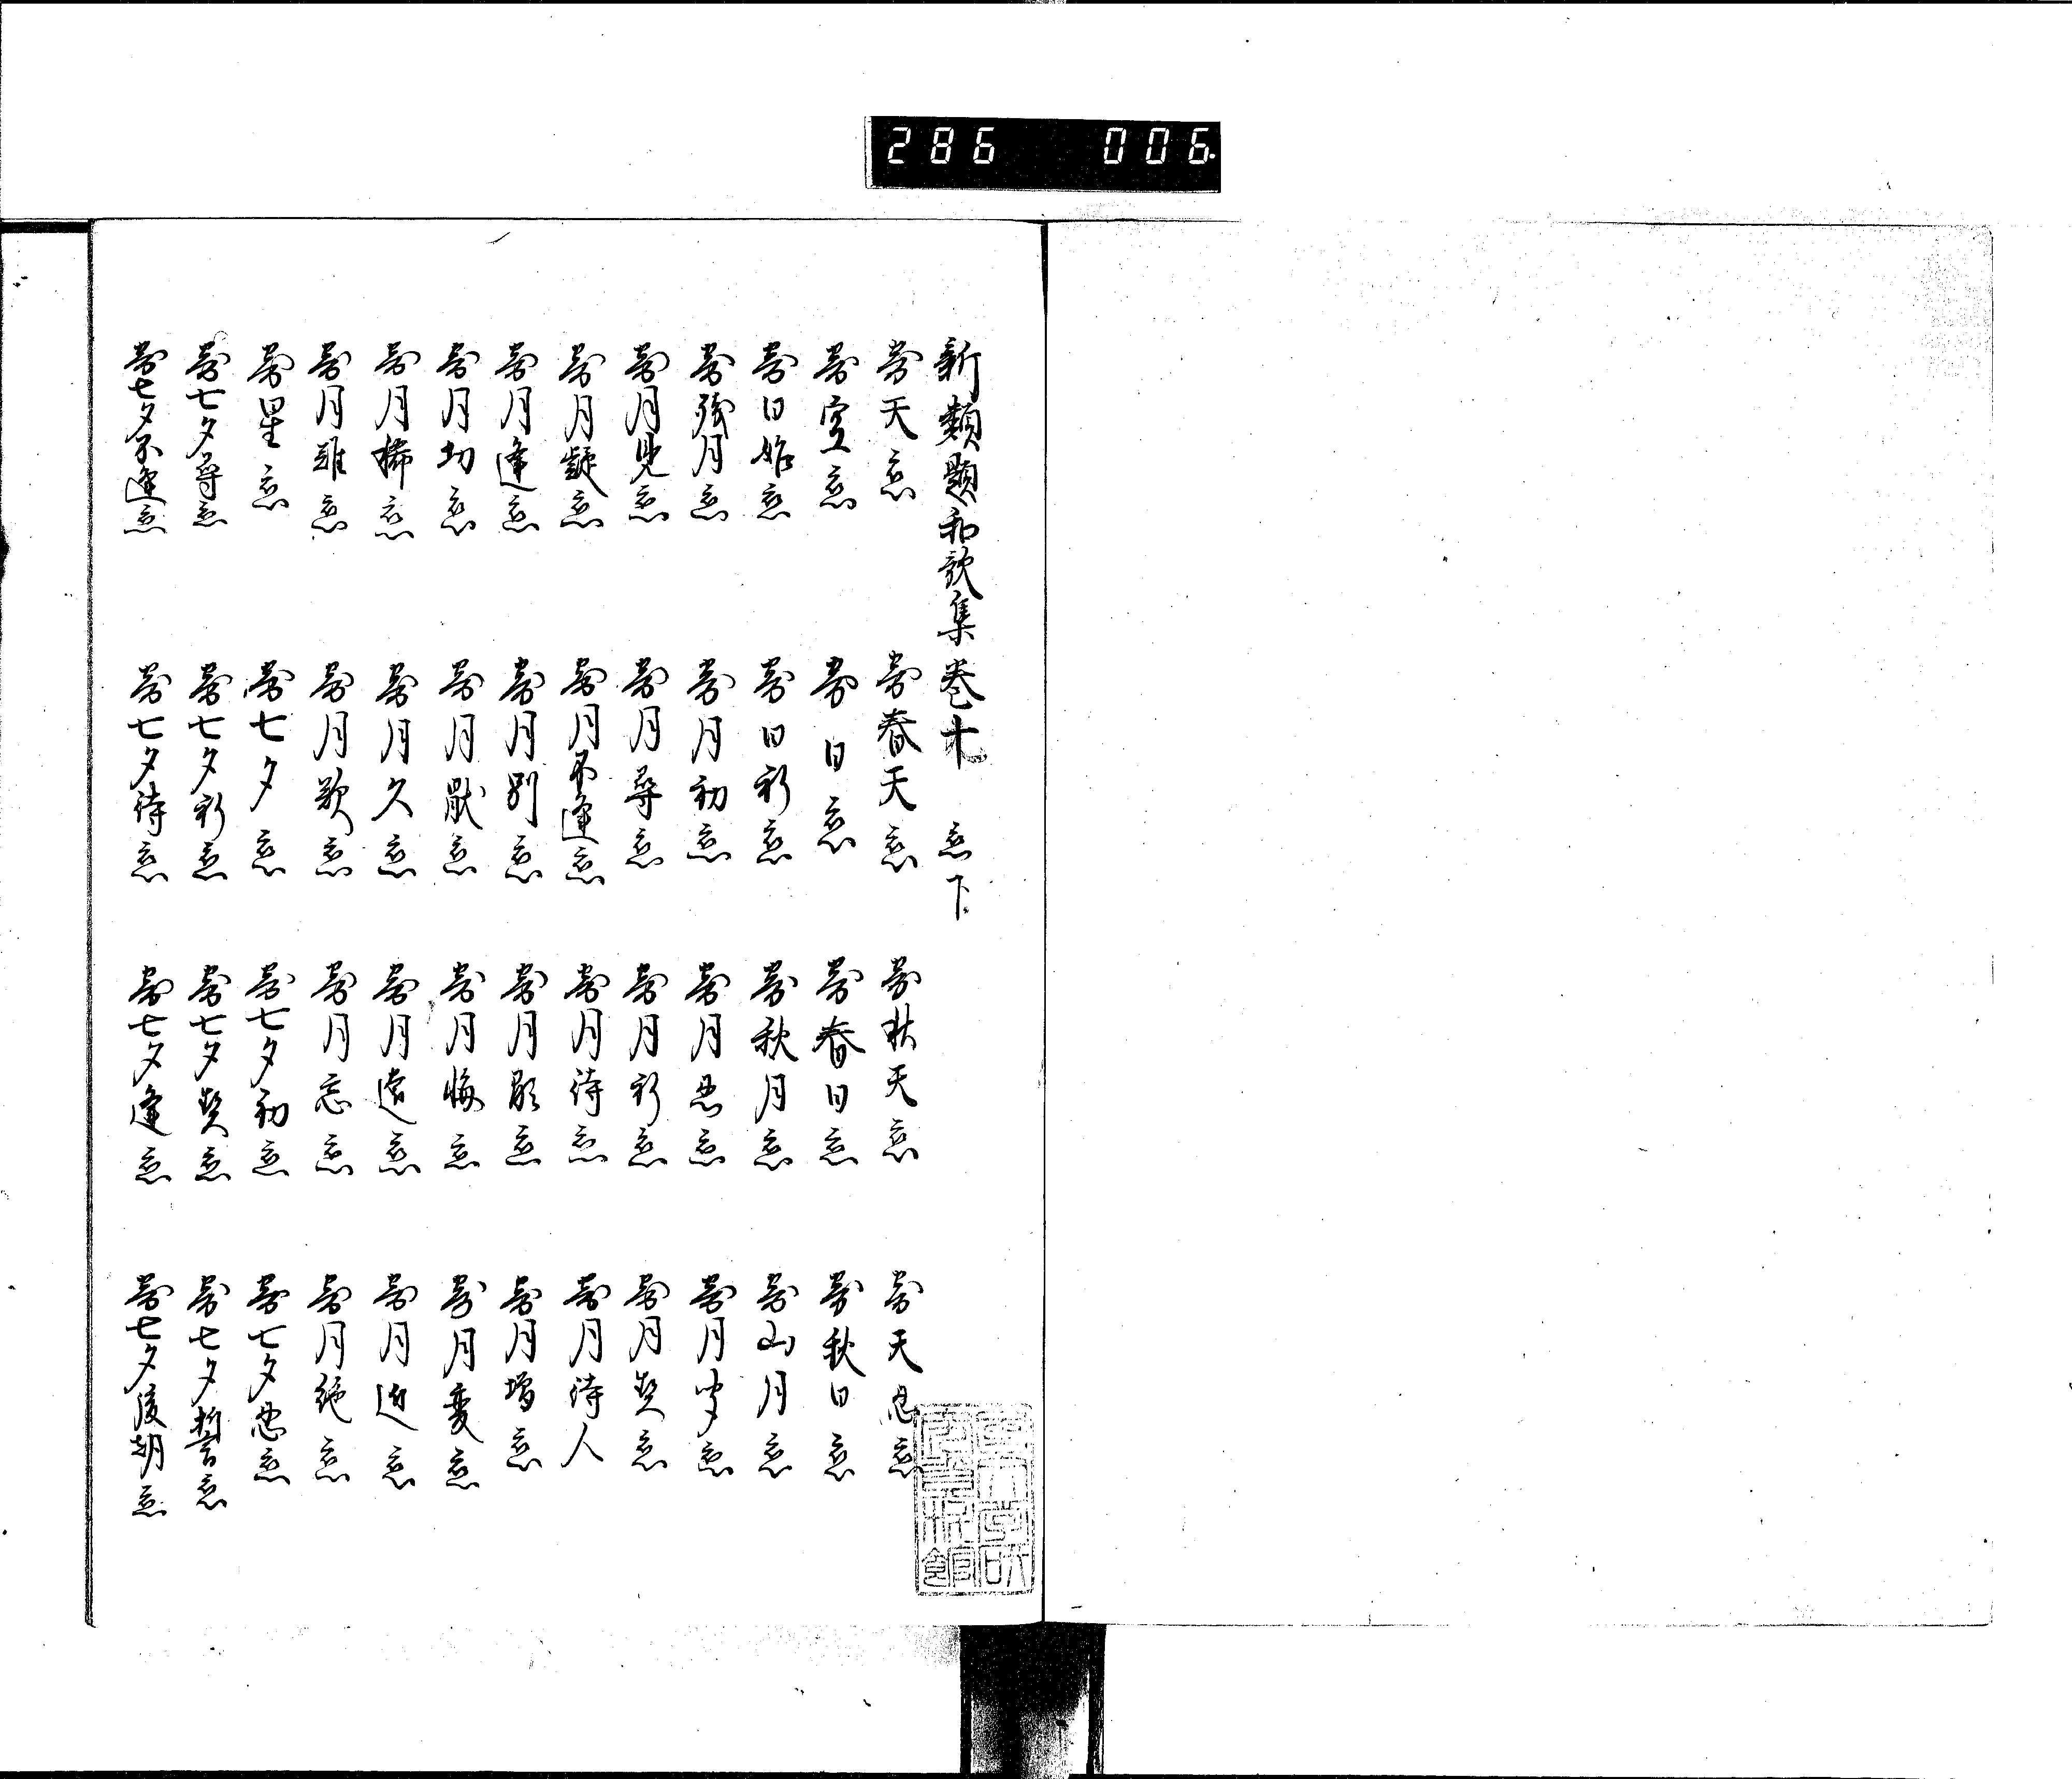 286 006
新類題和歌集巻十 恋下
寄天恋 寄春天恋 寄秋天恋 寄天忍恋
寄空恋 寄日恋 寄春日恋 寄秋日恋
寄日始恋 寄日祈恋 寄秋月恋 寄山月恋
寄残月恋 寄月初恋 寄月忍恋 寄月聞恋
寄月見恋 寄月尋恋 寄月祈恋 寄月契恋
寄月疑恋 寄月不逢恋 寄月待恋 寄月待人
寄月逢恋 寄月別恋 寄月顕恋 寄月増恋
寄月切恋 寄月厭恋 寄月悔恋 寄月変恋
寄月稀恋 寄月久恋 寄月遠恋 寄月近恋
寄月難恋 寄月歎恋 寄月忘恋 寄月絶恋
寄星恋 寄七夕恋 寄七夕初恋 寄七夕忍恋
寄七夕尋恋 寄七夕祈恋 寄七夕契恋 寄七夕誓恋
寄七夕不逢恋 寄七夕待恋 寄七夕逢恋 寄七夕後朝恋